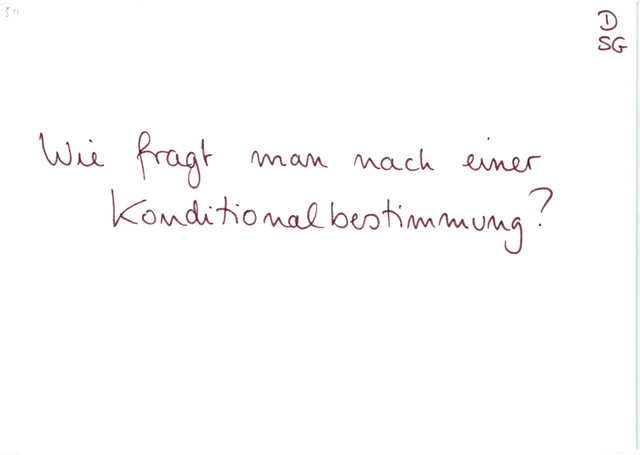 D
SG
Wie fragt man nach einer
Konditionalbestimmung?